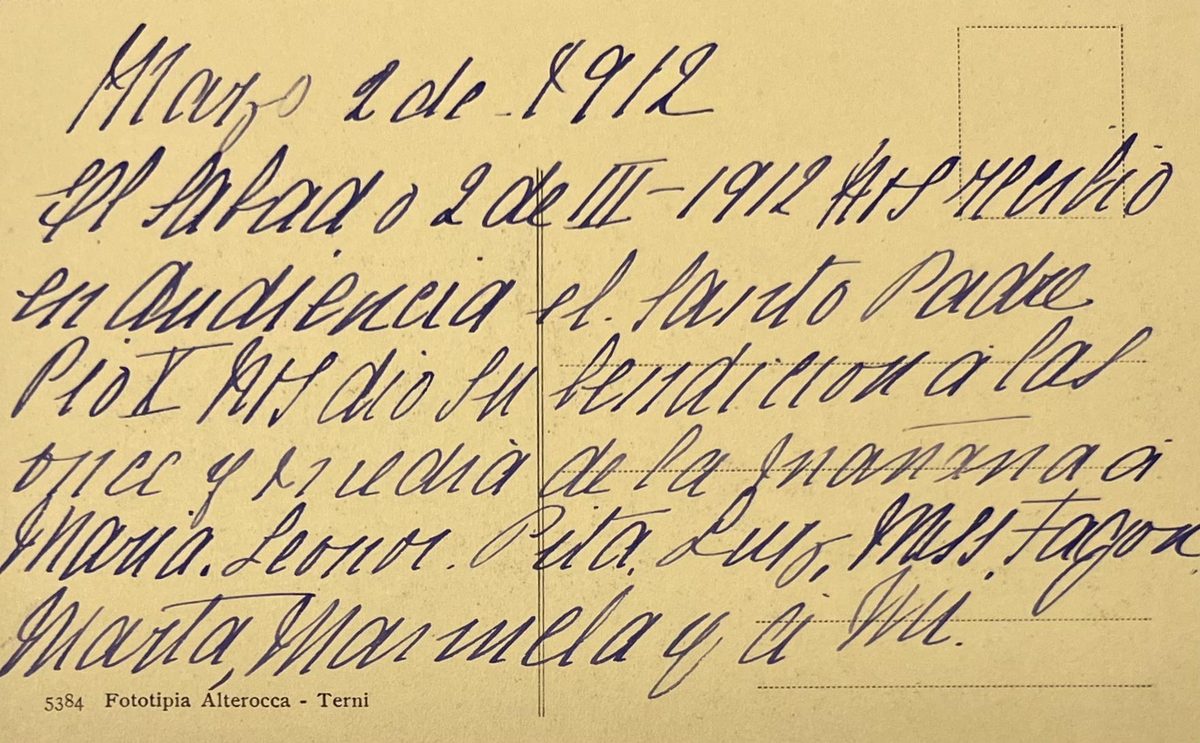 Marzo 2 de 1912
El Sabado 2 de III-1912 Nos recibio
en Audiencia el Santo Padre
Pio X Nos dio Su bendicion a las
once y media de la mañana á
Maria. Leonor. Pita. Luiz, Miss Fagon
Marta, Marmela y á Mi.
5384 Fototipia Alterocca - Terni